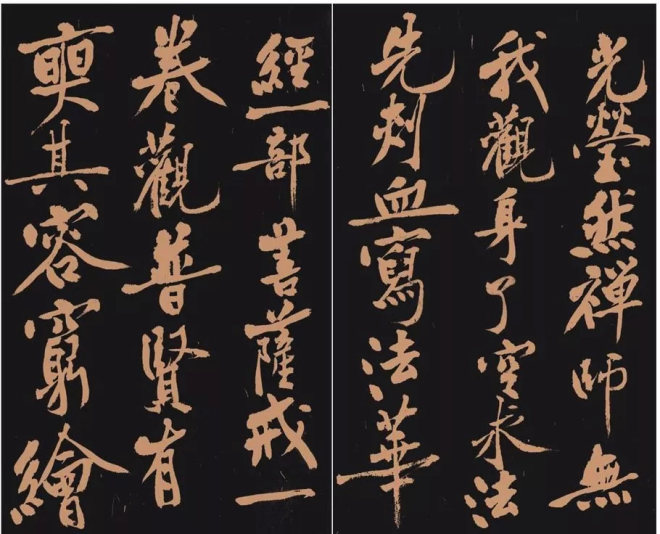 光瑩然禅師無
我觀身了空求法
先刺血寫法華
經一部菩薩戒一
卷觀普賢有
其容窮繪